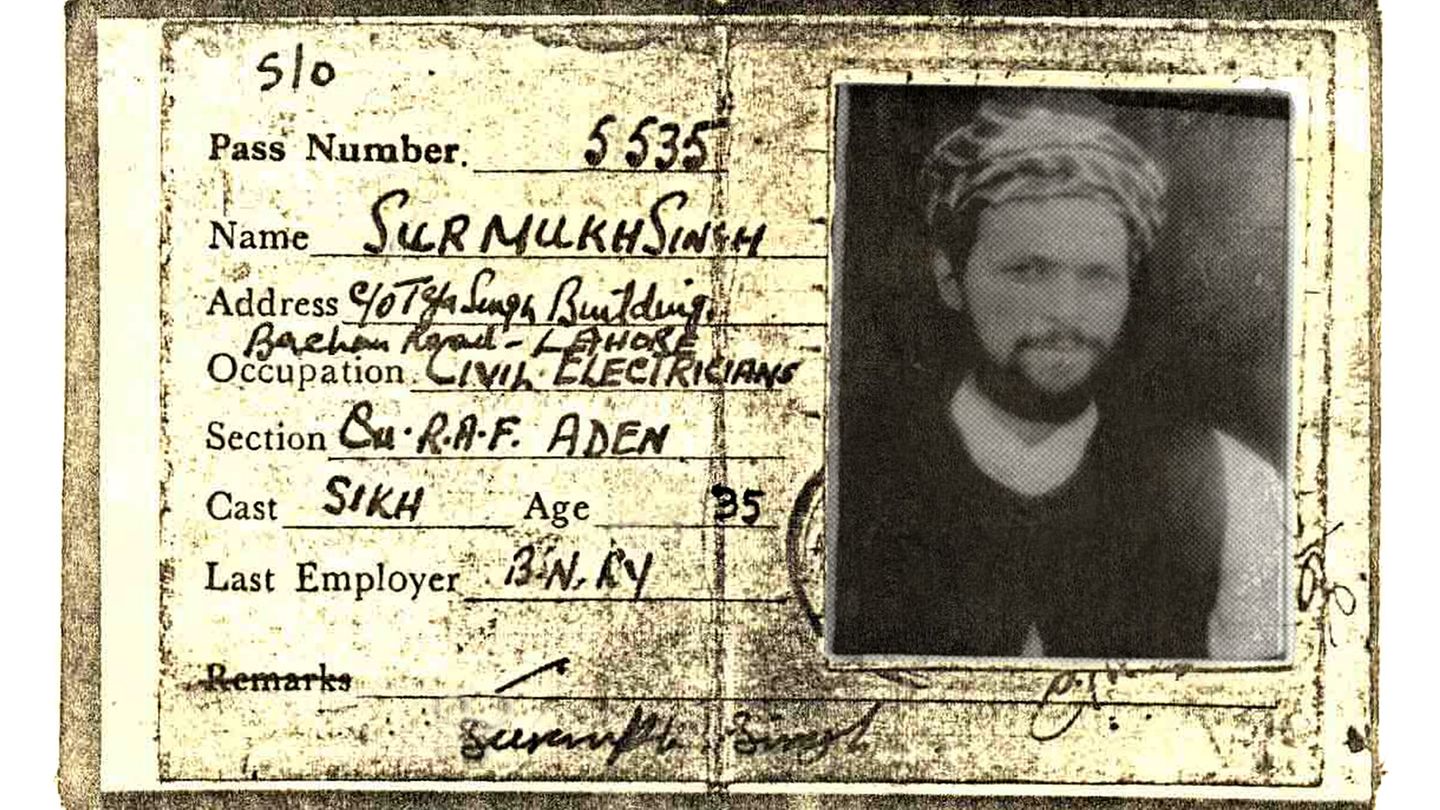 S/o
Pass Number. 5535
Name SURMUKH SINGH
Address c/o Teja Singh Building,
Road - LAHORE
Occupation CIVIL ELECTRICIANS
Section R.A.F. ADEN
Cast SIKH Age 35
Last Employer B.N. RY
Remarks
Singh